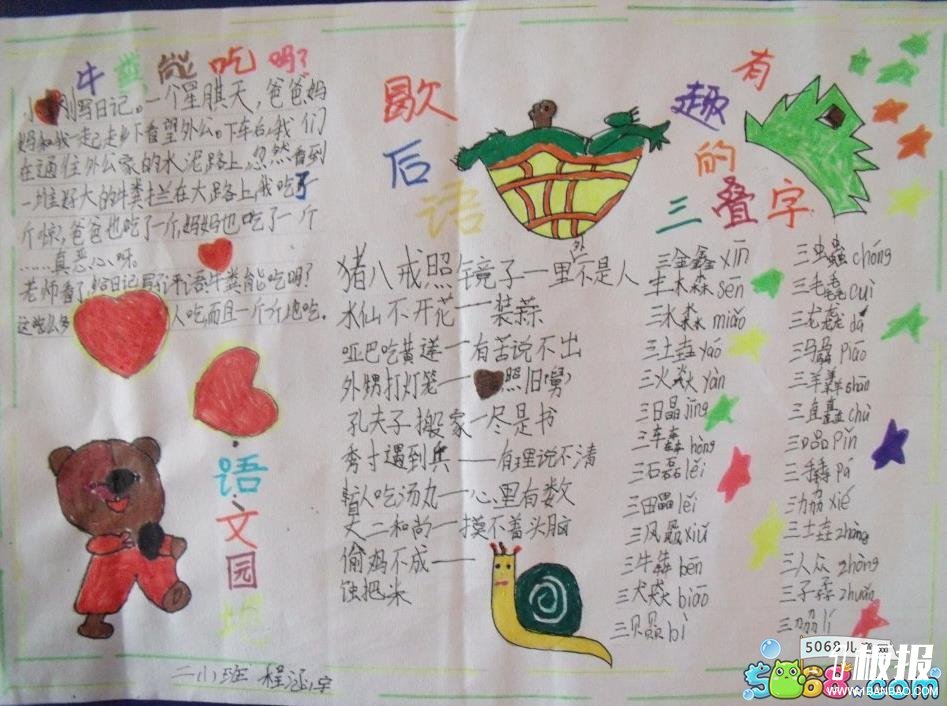 牛粪能吃吗?
小刚写日记。一个星期天，爸爸妈
妈和我一起走乡下看望外公。下车后，我们
在通往外公家的水泥路上，忽然看到
一堆好大的牛粪拦在大路上，我吃了
个惊，爸爸也吃了一个，妈妈也吃了一个
……真恶心呀。
老师看了日记写了评语：牛粪能吃吗?
这吃么多人吃，而且一个个地吃。
语文园地
二小班
歇后语
猪八戒照镜子一里外不是人
水仙不开花一装蒜
哑巴吃黄连一有苦说不出
外甥打灯笼一照旧(舅)
孔夫子搬家一尽是书
秀才遇到兵——有理说不清
瞎人吃汤丸一心里有数
丈二和尚一摸不着头脑
偷鸡不成——
蚀把米
有趣的三叠字
三金鑫 xīn
三木森 sēn
三水淼 miǎo
三土垚 yáo
三火焱 yàn
三日晶 jīng
三车轟 hōng
三石磊 lěi
三田畾 lěi
三风飍 xiū
三牛犇 bēn
三犬猋 biāo
三贝赑 bì
三虫蟲 chóng
三毛毳 cuì
三龙龘 dá
三马骉 piāo
三羊羴 shān
三直矗 chù
三口品 Pǐn
三手掱 pá
三力劦 xié
三土垚 zhàng
三人众 zhòng
三子孨 zhuǎn
三刕 lí
5068儿童网
5068.com
板报
WWW.1BANBAO.COM